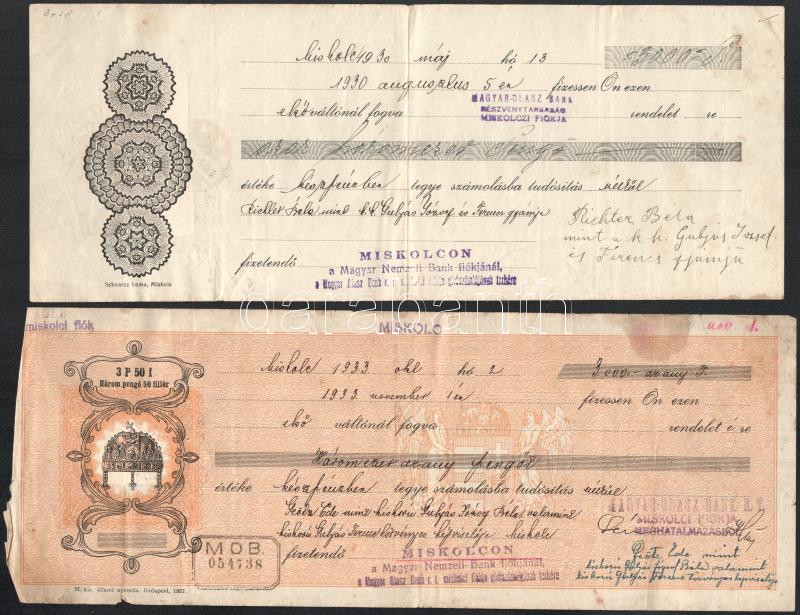 Miskolc 1930 máj hó 13 3000
1930 augusztus 5 én fizessen Ön ezen
MAGYAR-OLASZ BANK
RÉSZVÉNYTÁRSASÁG
MISKOLCZI FIÓKJA
első váltónál fogva rendelet re
azaz Háromezer Pengő
értéke készpénzben tegye számolásba tudósítás nélkül
Richter Béla mint k.k. Gulyás József és Ferenc gyámja
Richter Béla
mint a k.k. Gulyás József
és Ferencz gyámja
fizetendő
MISKOLCON
a Magyar Nemzeti Bank fiókjánál,
a Magyar Olasz Bank r. t. miskolci fiókja girószámlájának terhére
Schwarcz Soma, Miskolc
darabanth
miskolci fiók
MISKOLC
nov. 1.
3 P 50 f
Három pengő 50 fillér
Miskolc 1933 okt hó 2 3.000.- arany P.
1933 november 1 én fizessen Ön ezen
első váltónál fogva rendelet é re
Háromezer arany pengőt
értéke készpénzben tegye számolásba tudósítás nélkül
Ede mint kiskorú Gulyás József Béla, valamint
kiskorú Gulyás Ferenc törvényes képviselője Miskolc
MAGYAR-OLASZ BANK R.T.
MISKOLCI FIÓKJA
MEGHATALMAZÁSBÓL
fizetendő
MISKOLCON
a Magyar Nemzeti Bank fiókjánál,
a Magyar Olasz Bank r. t. miskolci fiókja girószámlájának terhére
Ede mint
kiskorú Gulyás József Béla valamint
kiskorú Gulyás Ferenc törvényes képviselője
MOB.
054738
M. kir. állami nyomda. Budapest, 1927.